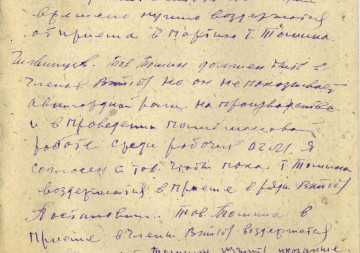 временно нужно воздержатся
от приема в партию т. Томина.
Тов Томин должен быть
членом ВКП(б) но он не показывает
авангардной роли на производстве
и в проведении полит массовой
работе среди рабочих Я
согласен с тов. чтобы пока т. Томина
воздержатся в приеме в ряды ВКП(б)
Постановили: Тов Томина в
приеме в члены ВКП(б) воздержатся
Томину